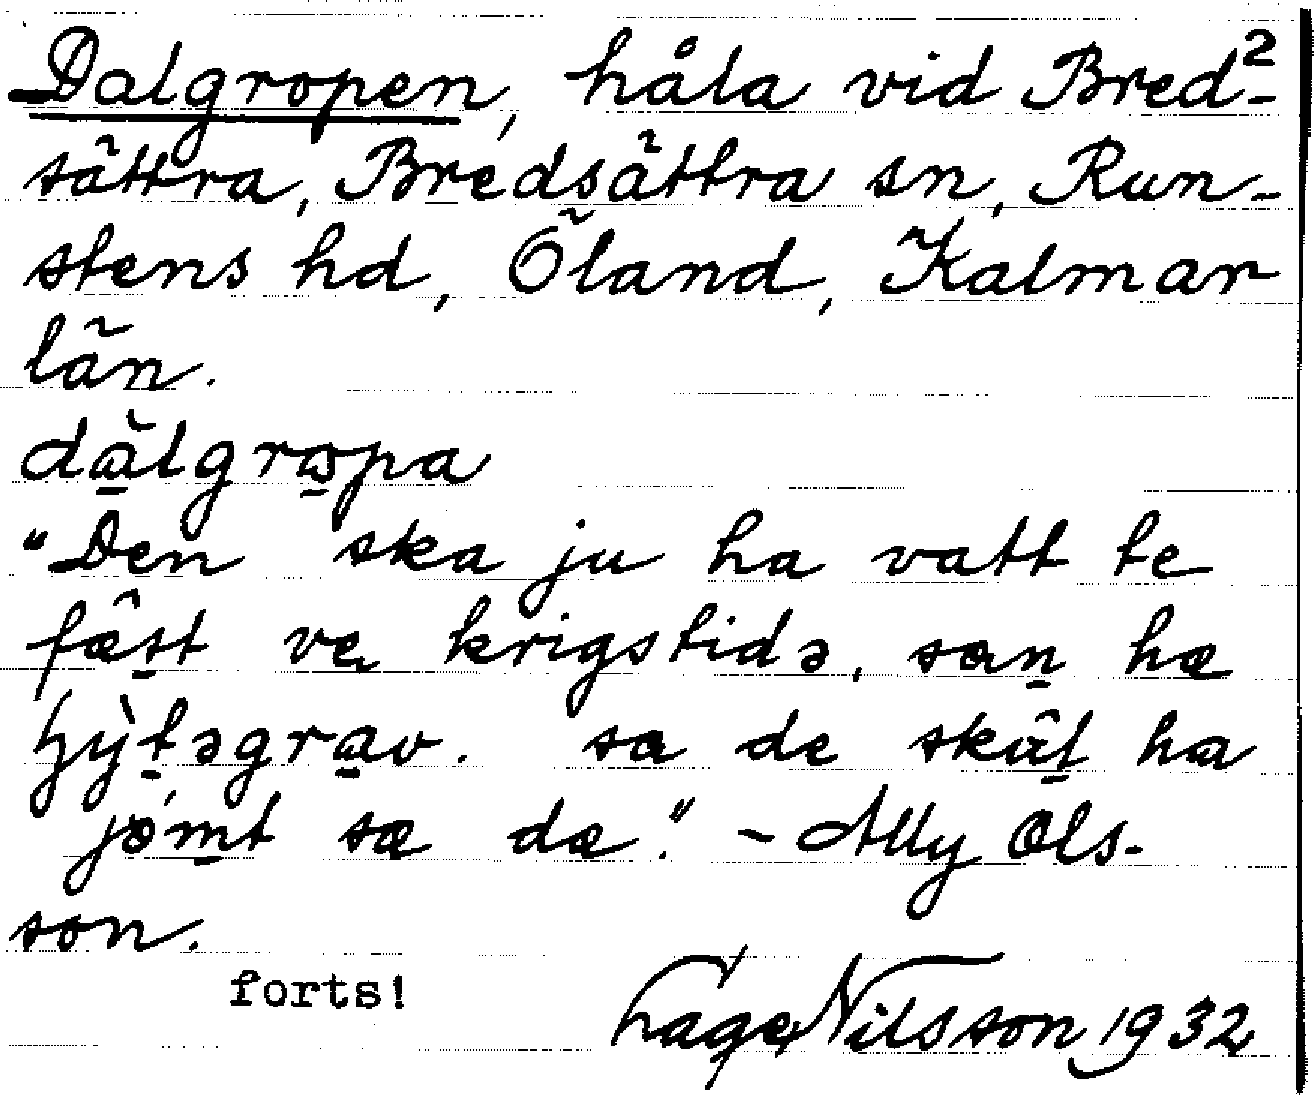 Dalgropen, håla vid Bred-²
sättra, Bredsättra sn, Run-
stens hd, Öland, Kalmar
län.
dὰ̱lgrω̱pa
"Den ska ju ha vatt te
fæ̂s̱t ve krigstidə, sαṉ hæ
ẖỳṯəgrα̱v. sα de skâḻ ha
jö́m̱t sæ dæ." - Ally Ols-
son.
forts!
Lage Nilsson 1932